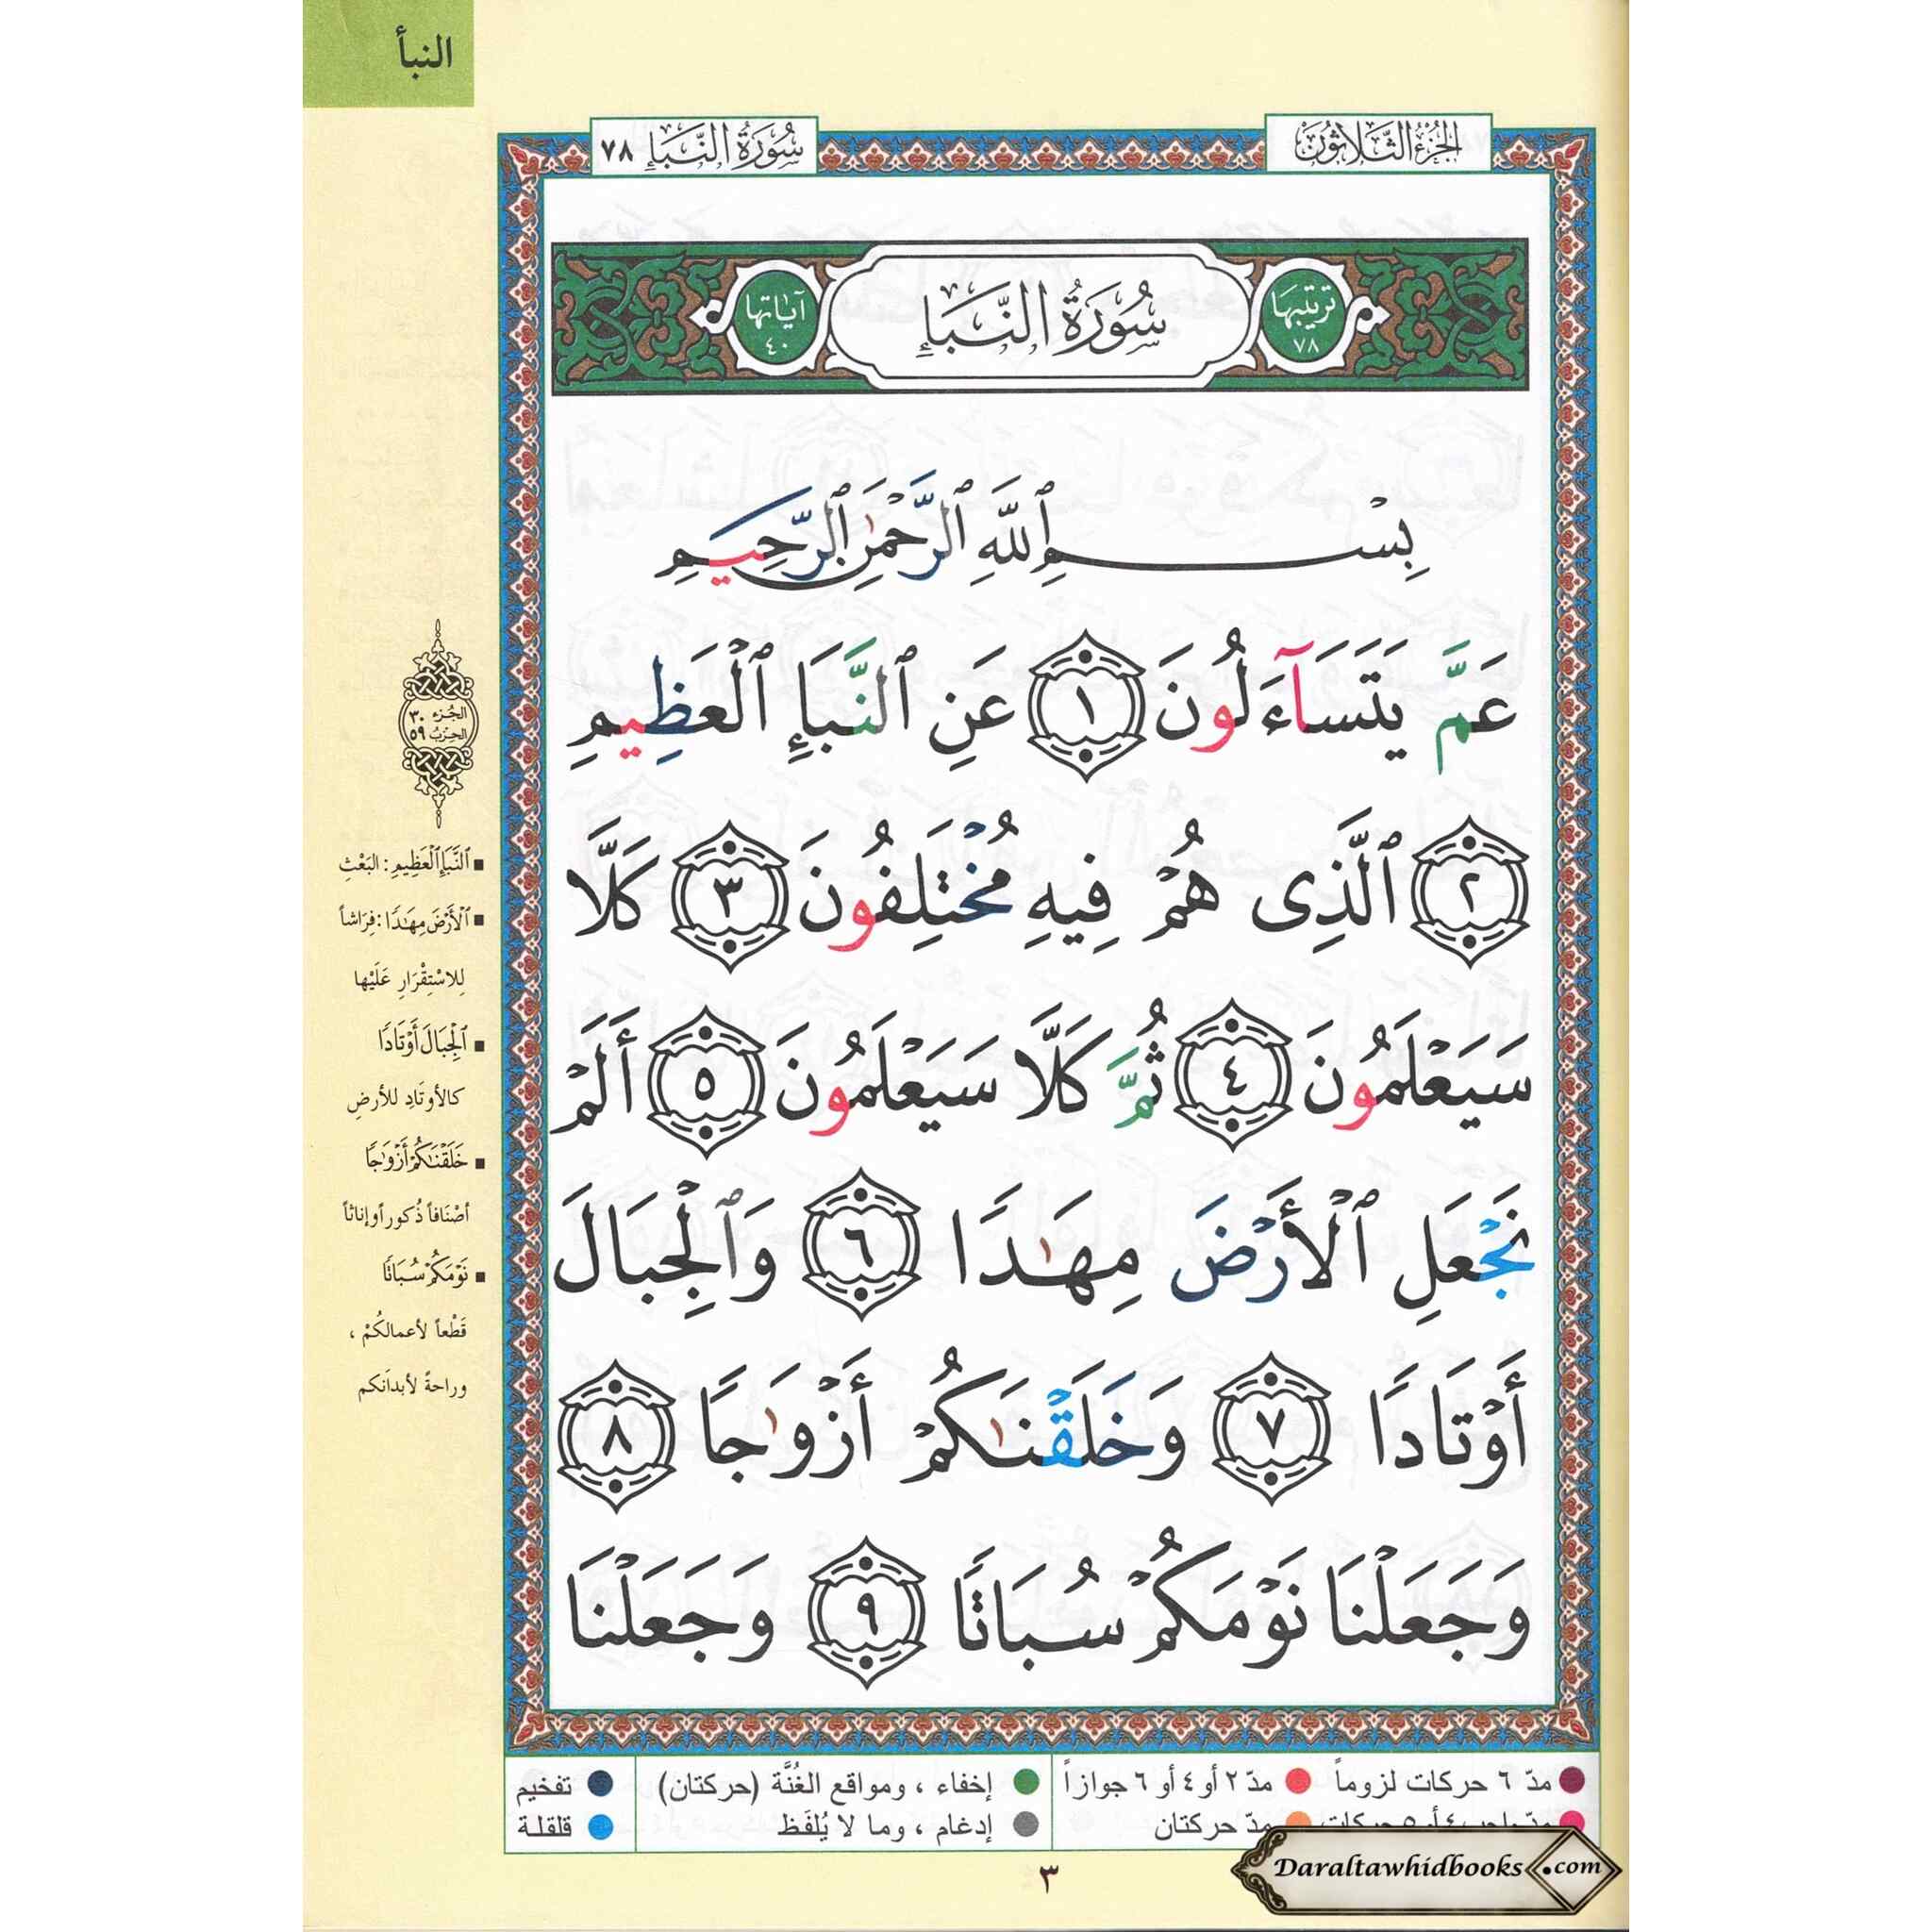 النبأ
الجُزءُ الثَّلاثُونَ
سُورَةُ النَّبَإِ ٧٨
ترتيبها ٧٨
سُورَةُ النَّبَإِ
آياتها ٤٠
بِسْمِ ٱللَّهِ ٱلرَّحْمَٰنِ ٱلرَّحِيمِ
عَمَّ يَتَسَآءَلُونَ ١ عَنِ ٱلنَّبَإِ ٱلْعَظِيمِ
٢ ٱلَّذِى هُمْ فِيهِ مُخْتَلِفُونَ ٣ كَلَّا
سَيَعْلَمُونَ ٤ ثُمَّ كَلَّا سَيَعْلَمُونَ ٥ أَلَمْ
نَجْعَلِ ٱلْأَرْضَ مِهَٰدًا ٦ وَٱلْجِبَالَ
أَوْتَادًا ٧ وَخَلَقْنَٰكُمْ أَزْوَٰجًا ٨
وَجَعَلْنَا نَوْمَكُمْ سُبَاتًا ٩ وَجَعَلْنَا
الجُزء ٣٠
الحِزبُ ٥٩
▪ ٱلنَّبَإِ ٱلْعَظِيمِ : البَعْثِ
▪ ٱلْأَرْضَ مِهَٰدًا : فِرَاشاً
لِلاسْتِقْرَارِ عَلَيْها
▪ ٱلْجِبَالَ أَوْتَادًا
كالأوتَادِ للأرضِ
▪ خَلَقْنَٰكُمْ أَزْوَٰجًا
أصْنَافاً ذُكوراً وإناثاً
▪ نَوْمَكُمْ سُبَاتًا
قَطْعاً لأعمالكُمْ ،
وراحةً لأبدانكم
مدّ ٦ حركات لزوماً مدّ ٢ أو ٤ أو ٦ جوازاً
مدّ واجب ٤ أو ٥ حركات مدّ حركتان
إخفاء ، ومواقع الغُنَّة (حركتان)
إدغام ، وما لا يُلفَظ
تفخيم
قلقلة
٣
Daraltawhidbooks.com